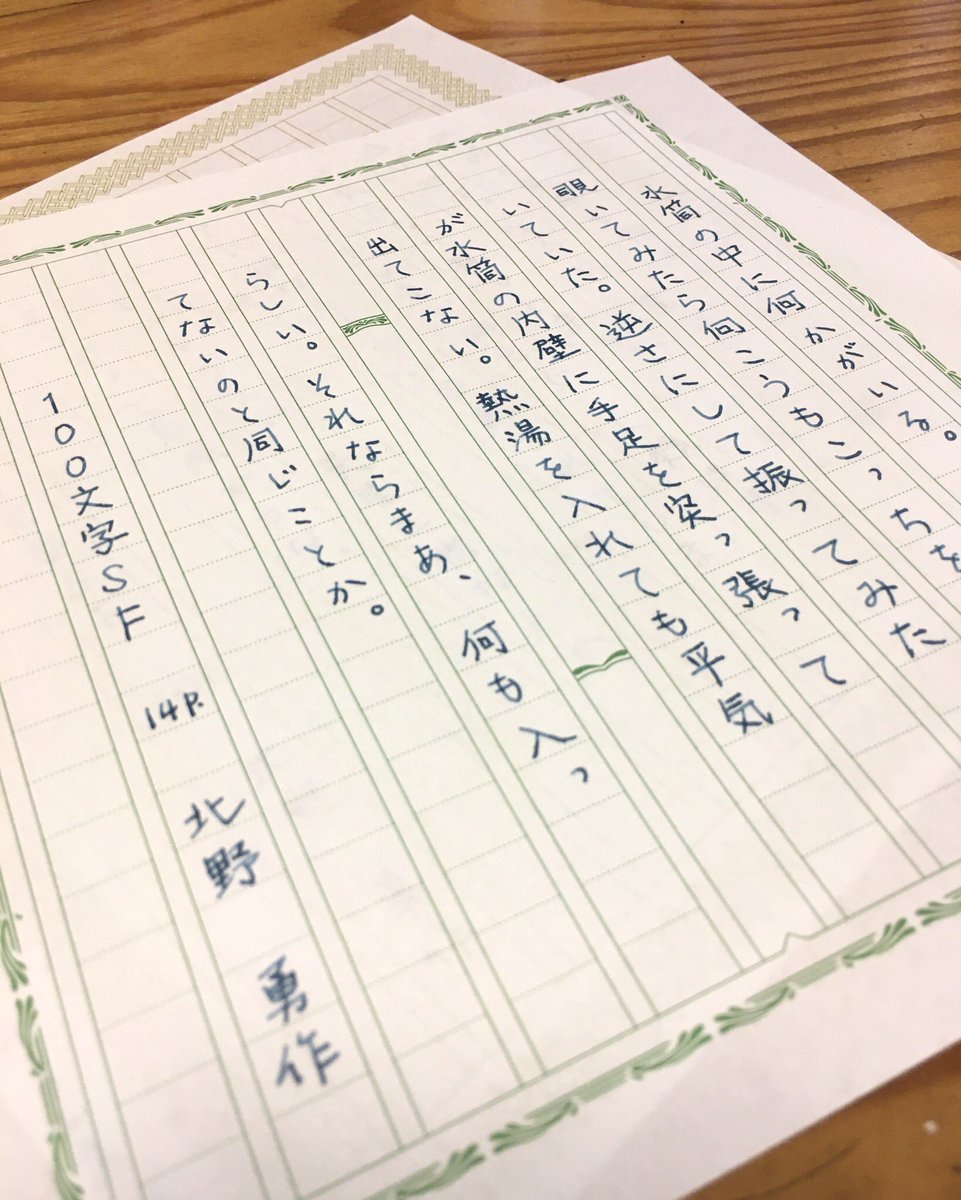 水筒の中に何かがいる。
覗いてみたら向こうもこっちを
いていた。逆さにして振ってみた
が水筒の内壁に手足を突っ張って
出てこない。熱湯を入れても平気
らしい。それならまあ、何も入っ
てないのと同じことか。
100文字SF 14P. 北野 勇作